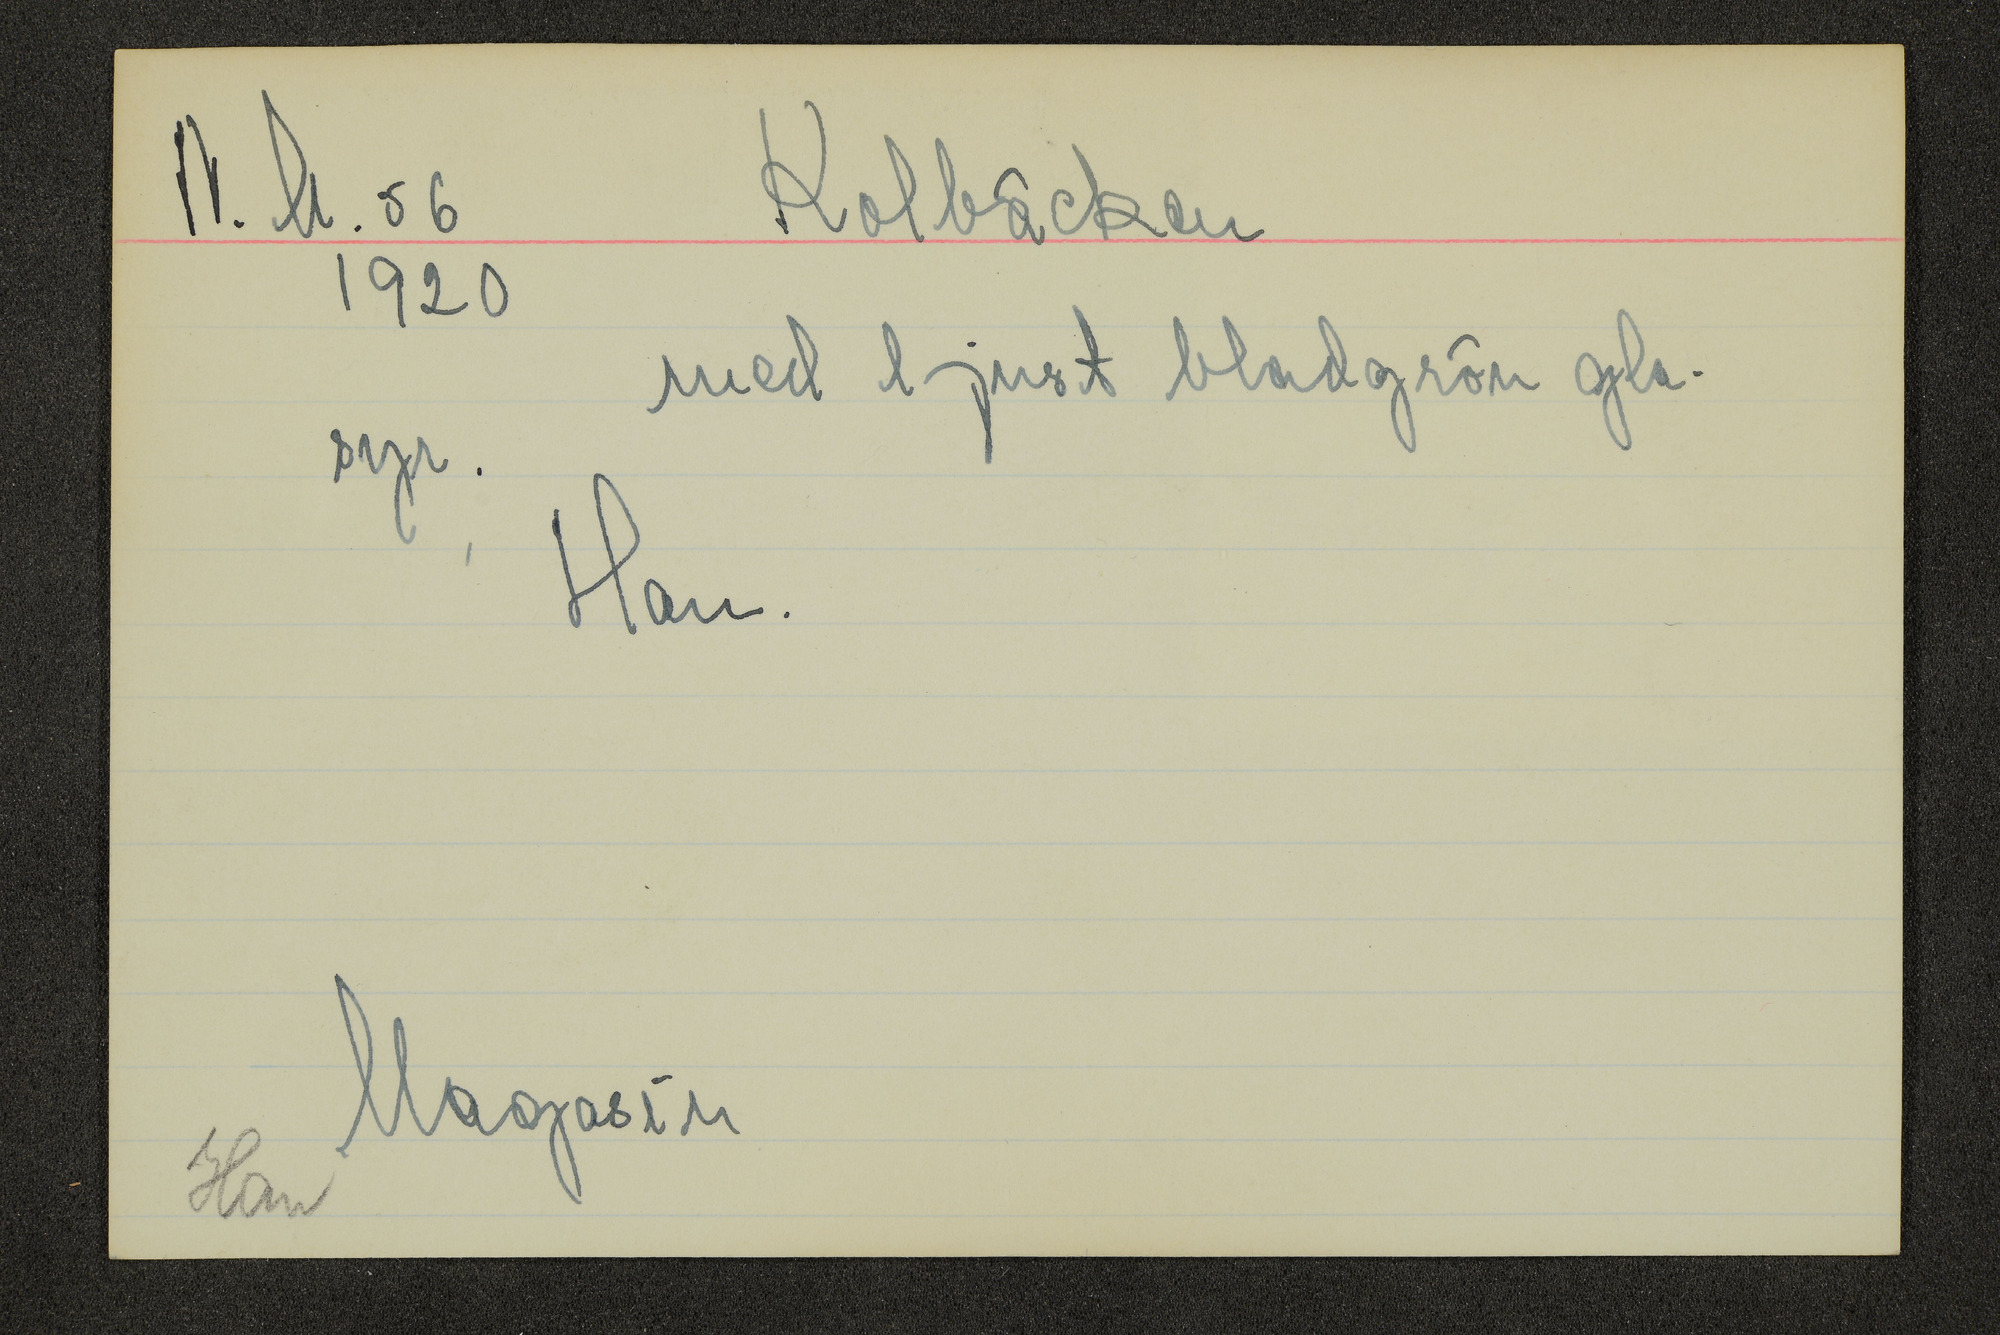 N. M. 56 Kolbäcken
1920
med ljust bladgrön gla-
syr.
Han.
Magasin
Han